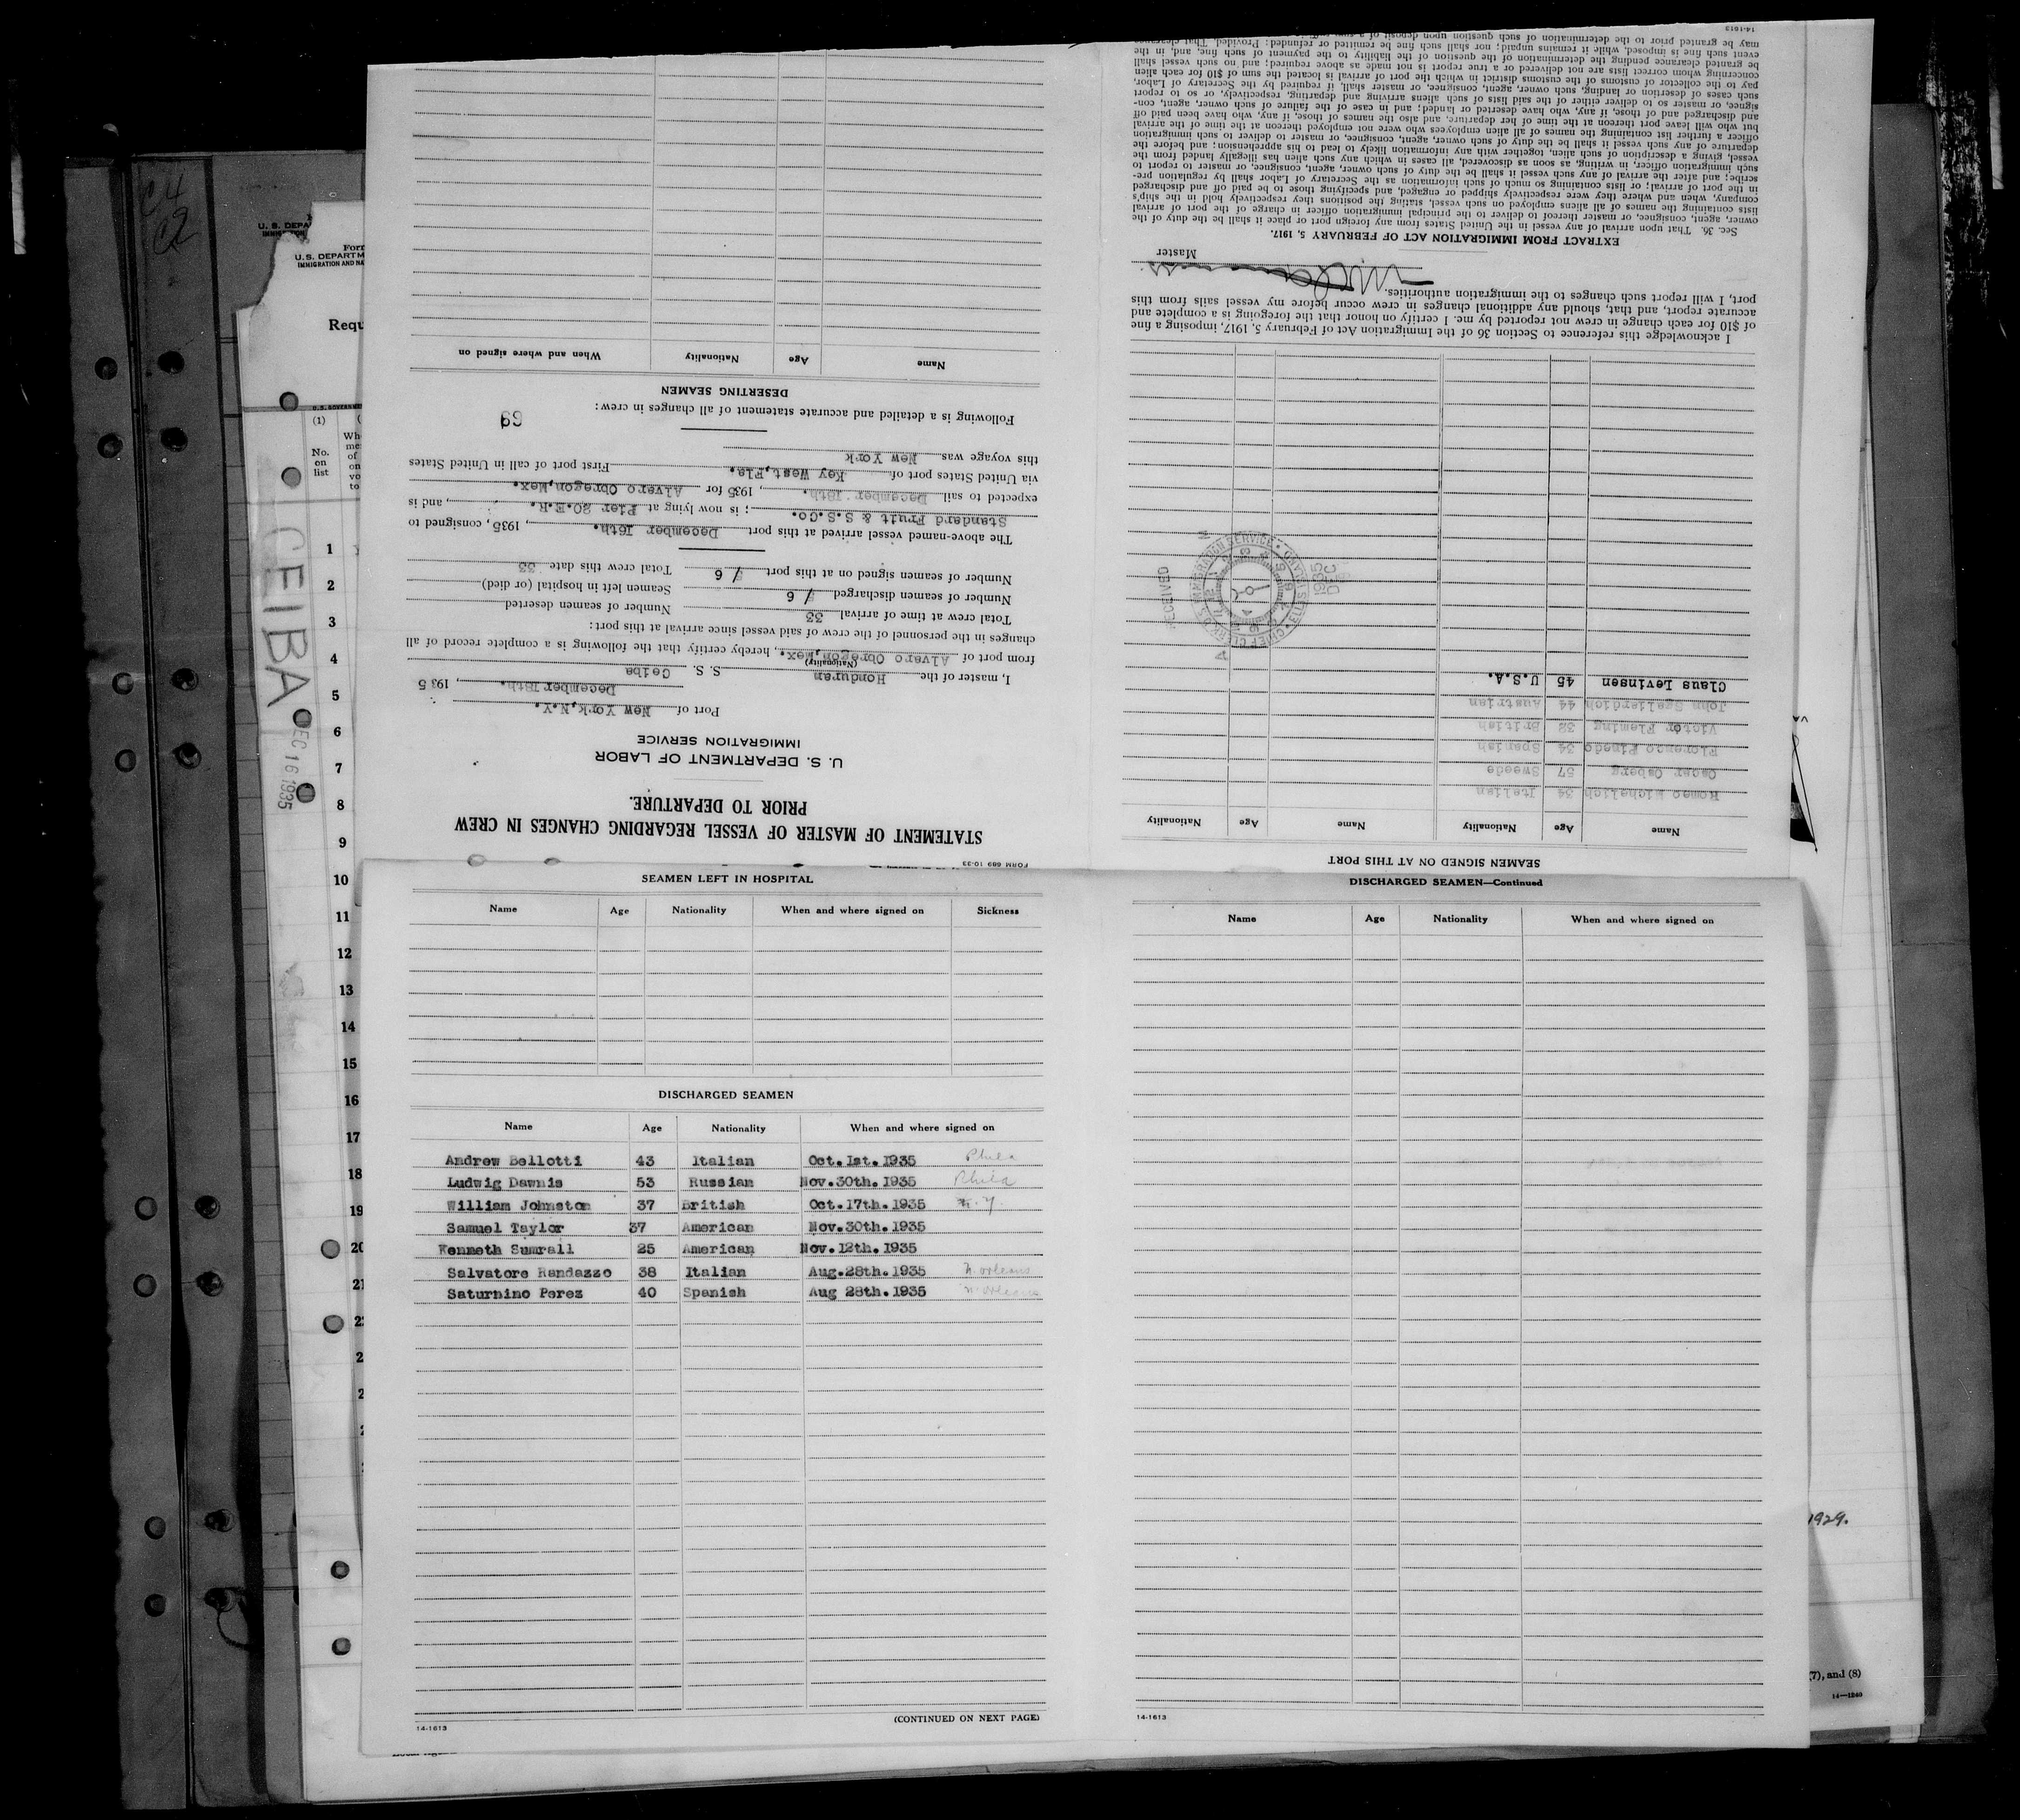 C4
C2
U. S. DEPA
Form
U. S. DEPARTM
IMMIGRATION AND NA
Requ
(1)
No.
on
list
CEIBA
DEC 16 1935
1
2
3
4
5
6
7
8
9
10
11
12
13
14
15
16
17
18
19
20
21
FORM 689 10-33
STATEMENT OF MASTER OF VESSEL REGARDING CHANGES IN CREW
PRIOR TO DEPARTURE.
U. S. DEPARTMENT OF LABOR
IMMIGRATION SERVICE
Port of New York, N.Y.
December 18th., 1935
I, master of the Honduran S. S. Ceiba
(Nationality)
from port of Alvaro Obregon, Mex., hereby certify that the following is a complete record of all
changes in the personnel of the crew of said vessel since arrival at this port:
Total crew at time of arrival 33 Number of seamen deserted
Number of seamen discharged 6 Seamen left in hospital (or died)
Number of seamen signed on at this port 6 Total crew this date 33
The above-named vessel arrived at this port December 16th., 1935, consigned to
Standard Fruit & S.S.Co.; is now lying at Pier 20.E.R., and is
expected to sail December 18th., 1935 for Alvaro Obregon, Mex.
via United States port of Key West, Fla. First port of call in United States
this voyage was New York
Following is a detailed and accurate statement of all changes in crew:
69
DESERTING SEAMEN
Name Age Nationality When and where signed on
SEAMEN SIGNED ON AT THIS PORT
Name Age Nationality Name Age Nationality
Romeo Michelich 34 Italian
Oscar Osberg 57 Swede
Florenco Pinedo 34 Spanish
Victor Fleming 32 British
John Sgallerdich 44 Austrian
Claus Levinsen 45 U.S.A.
RECEIVED
I acknowledge this reference to Section 36 of the Immigration Act of February 5, 1917, imposing a fine
of $10 for each change in crew not reported by me. I certify on honor that the foregoing is a complete and
accurate report, and that, should any additional changes in crew occur before my vessel sails from this
port, I will report such changes to the immigration authorities.
Master
EXTRACT FROM IMMIGRATION ACT OF FEBRUARY 5, 1917.
Sec. 36. That upon arrival of any vessel in the United States from any foreign port or place it shall be the duty of the
owner, agent, consignee, or master thereof to deliver to the principal immigration officer in charge of the port of arrival
lists containing the names of all aliens employed on such vessel, stating the positions they respectively hold in the ship's
company, when and where they were respectively shipped or engaged, and specifying those to be paid off and discharged
in the port of arrival; or lists containing so much of such information as the Secretary of Labor shall by regulation pre-
scribe; and after the arrival of any such vessel it shall be the duty of such owner, agent, consignee, or master to report to
such immigration officer, in writing, as soon as discovered, all cases in which any such alien has illegally landed from the
vessel, giving a description of such alien, together with any information likely to lead to his apprehension; and before the
departure of any such vessel it shall be the duty of such owner, agent, consignee, or master to deliver to such immigration
officer a further list containing the names of all alien employees who were not employed thereon at the time of the arrival
but who will leave port thereon at the time of her departure, and also the names of those, if any, who have been paid off
and discharged and of those, if any, who have deserted or landed; and in case of the failure of such owner, agent, con-
signee, or master so to deliver either of the said lists of such aliens arriving and departing, respectively, or so to report
such cases of desertion or landing, such owner, agent, consignee, or master shall, if required by the Secretary of Labor,
pay to the collector of customs of the customs district in which the port of arrival is located the sum of $10 for each alien
concerning whom correct lists are not delivered or a true report is not made as above required; and no such vessel shall
be granted clearance pending the determination of the question of the liability to the payment of such fine, and, in the
event such fine is imposed, while it remains unpaid; nor shall such fine be remitted or refunded: Provided, That clearance
may be granted prior to the determination of such question upon deposit of a sum
14-1613
SEAMEN LEFT IN HOSPITAL
Name Age Nationality When and where signed on Sickness
DISCHARGED SEAMEN
Name Age Nationality When and where signed on
Andrew Bellotti 43 Italian Oct. 1st. 1935 Phila
Ludwig Dawnis 53 Russian Nov. 30th. 1935 Phila
William Johnston 37 British Oct. 17th. 1935 N. Y.
Samuel Taylor 37 American Nov. 30th. 1935
Kenneth Sumrall 25 American Nov. 12th. 1935
Salvatore Randazzo 38 Italian Aug. 28th. 1935 N. Orleans
Saturnino Perez 40 Spanish Aug 28th. 1935 N. Orleans
14-1613
(CONTINUED ON NEXT PAGE)
DISCHARGED SEAMEN—Continued
Name Age Nationality When and where signed on
14-1613
1929.
(7), and (8)
14—1240